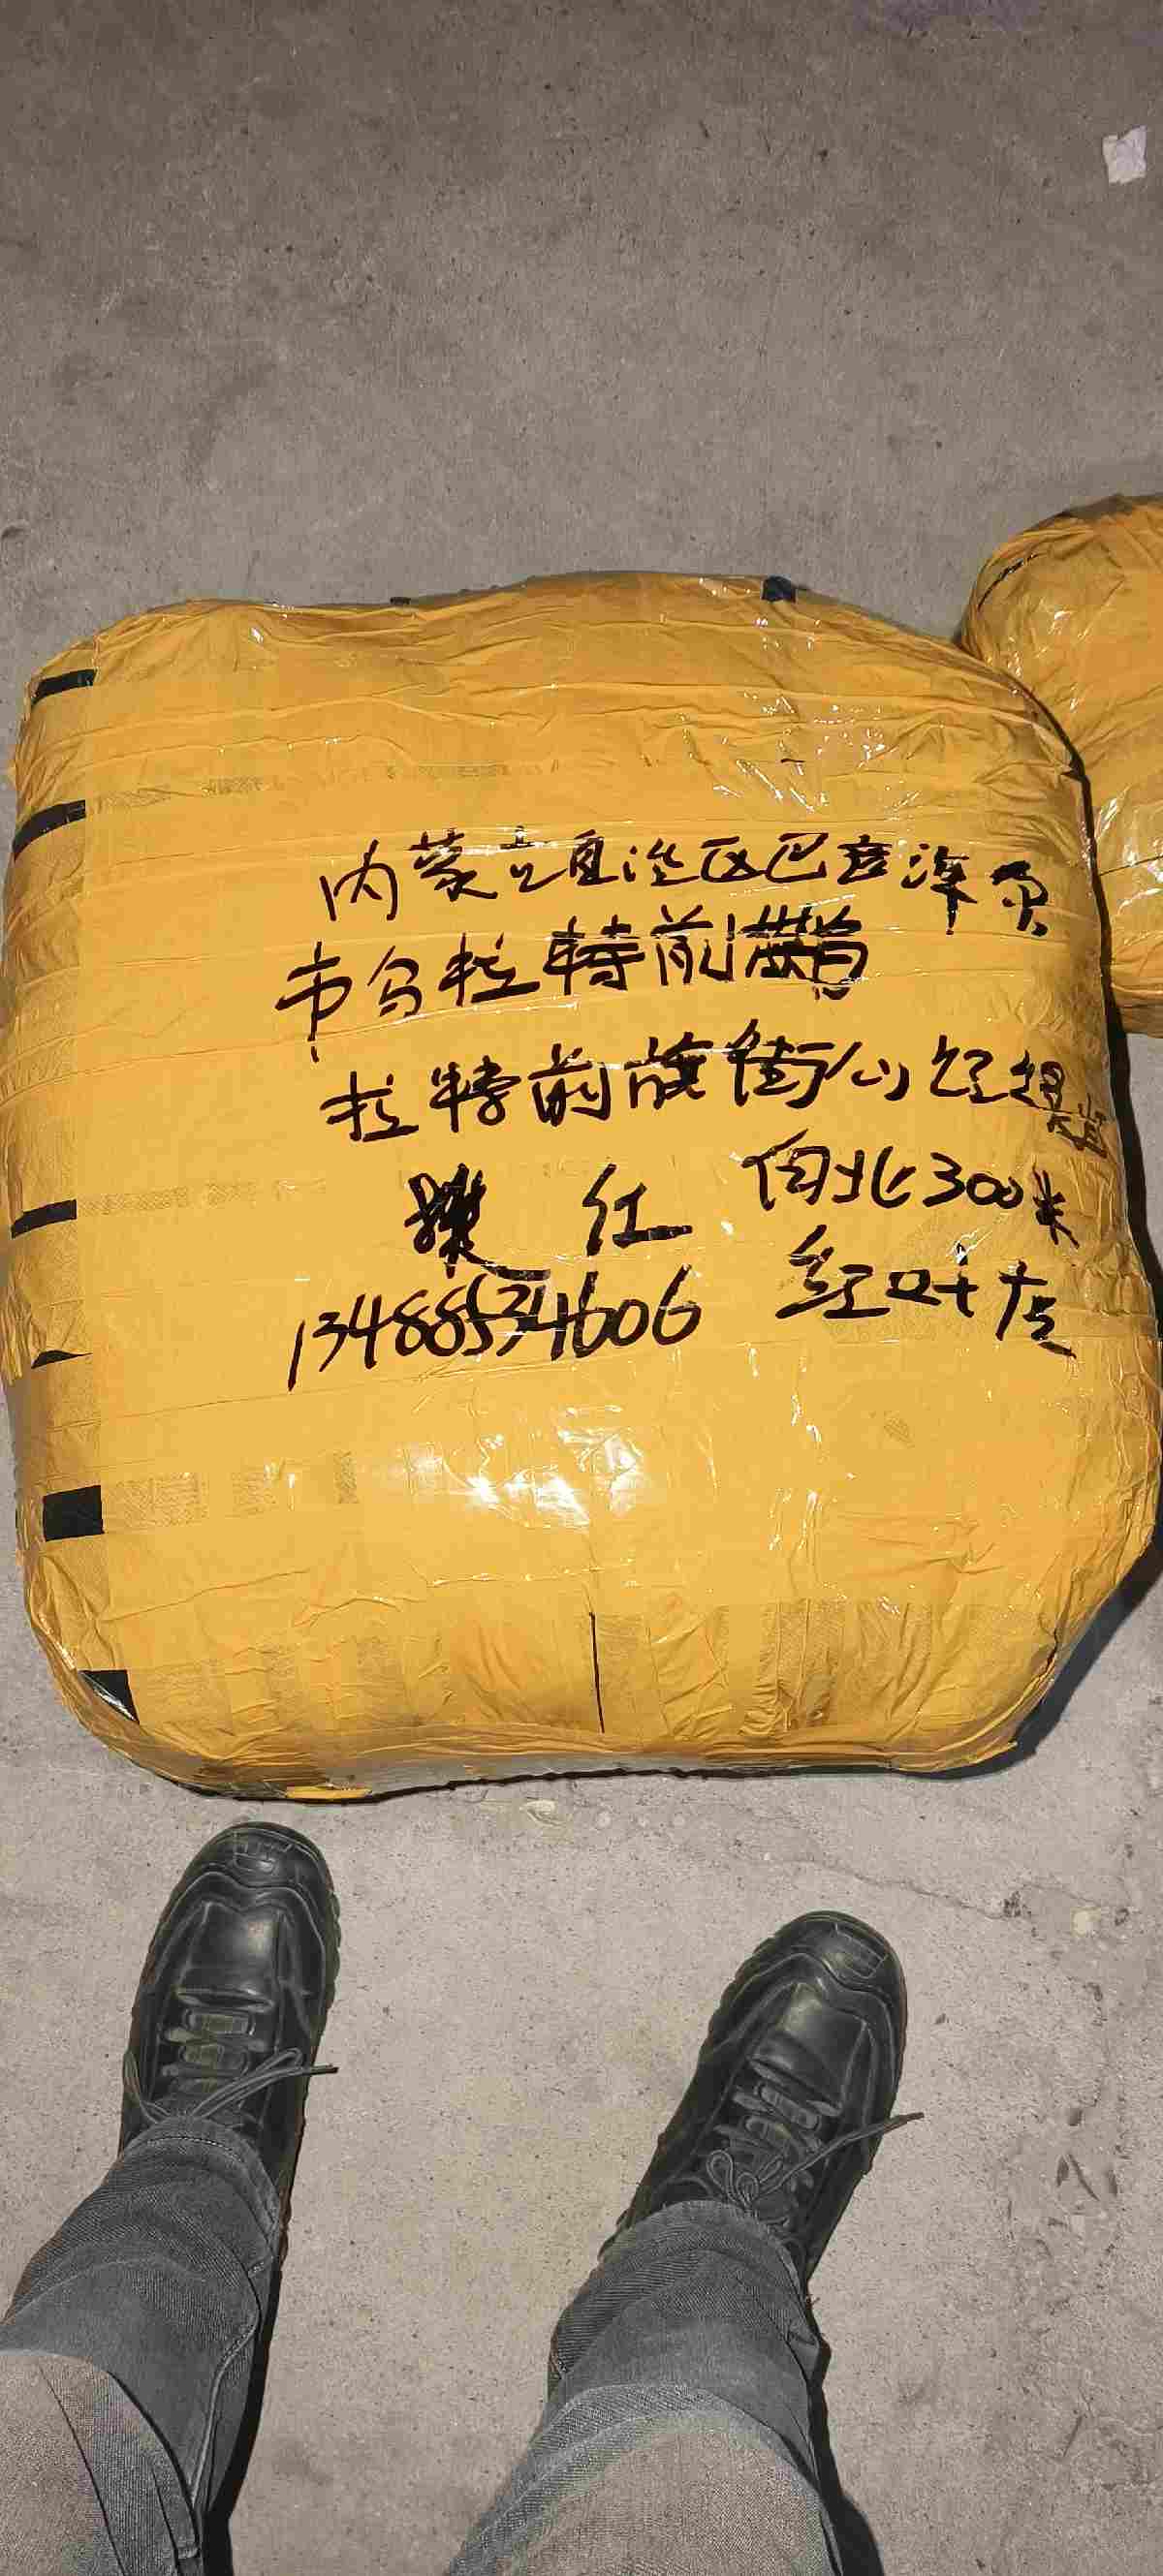 内蒙古自治区巴彦淖尔
市乌拉特前旗
拉特前旗街
向北300米
红
红叶店
13488534606